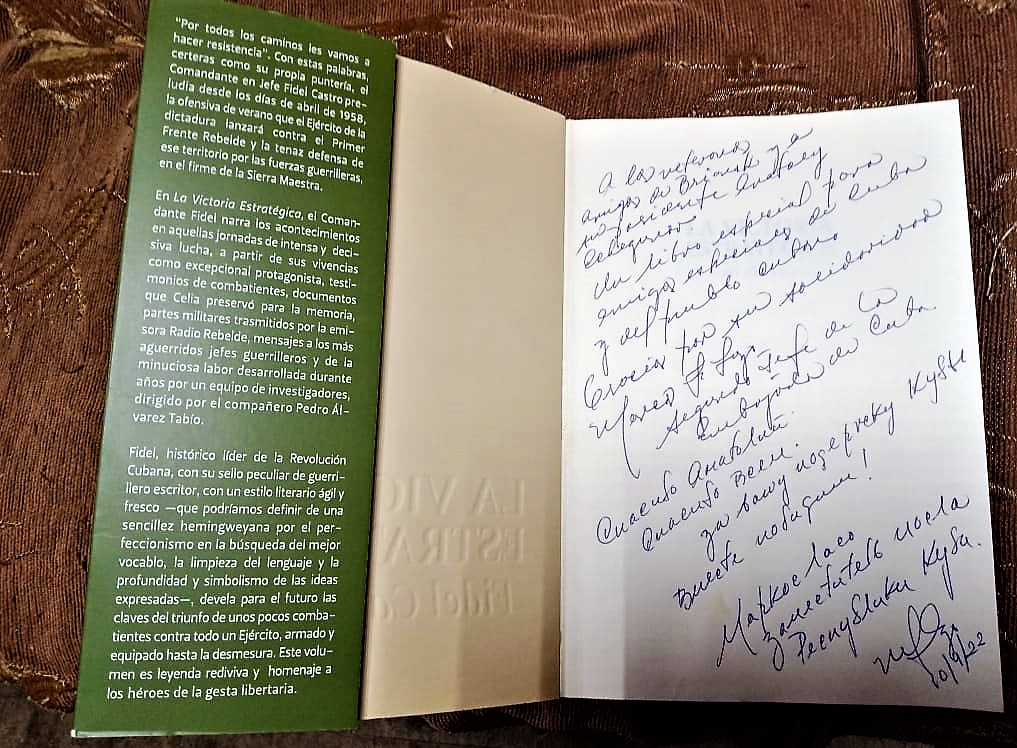 "Por todos los caminos les vamos a
hacer resistencia". Con estas palabras,
certeras como su propia puntería, el
Comandante en Jefe Fidel Castro pre-
ludia desde los días de abril de 1958,
la ofensiva de verano que el Ejército de la
dictadura lanzará contra el Primer
Frente Rebelde y la tenaz defensa de
ese territorio por las fuerzas guerrilleras,
en el firme de la Sierra Maestra.
En La Victoria Estratégica, el Coman-
dante Fidel narra los acontecimientos
en aquellas jornadas de intensa y deci-
siva lucha, a partir de sus vivencias
como excepcional protagonista, testi-
monios de combatientes, documentos
que Celia preservó para la memoria,
partes militares trasmitidos por la emi-
sora Radio Rebelde, mensajes a los más
aguerridos jefes guerrilleros y de la
minuciosa labor desarrollada durante
años por un equipo de investigadores,
dirigido por el compañero Pedro Ál-
varez Tabío.
Fidel, histórico líder de la Revolución
Cubana, con su sello peculiar de guerri-
llero escritor, con un estilo literario ágil y
fresco —que podríamos definir de una
sencillez hemingweyana por el per-
feccionismo en la búsqueda del mejor
vocablo, la limpieza del lenguaje y la
profundidad y simbolismo de las ideas
expresadas—, devela para el futuro las
claves del triunfo de unos pocos comba-
tientes contra todo un Ejército, armado y
equipado hasta la desmesura. Este volu-
men es leyenda rediviva y homenaje a
los héroes de la gesta libertaria.
LA VIC
ESTRA
Fidel Ca
A los
amigos de Briansk y a
su Presidente Anatoly
Un libro especial para
amigos especiales de Cuba
y del pueblo cubano
Gracias por su solidaridad
Marcos
Segundo Jefe de la
Embajada de Cuba.
Спасибо Анатолий.
Спасибо Всем
за вашу подержку Кубы
Вместе победим!
Маркос Ласо
заместитель посла
Республики Куба.
10/9/22